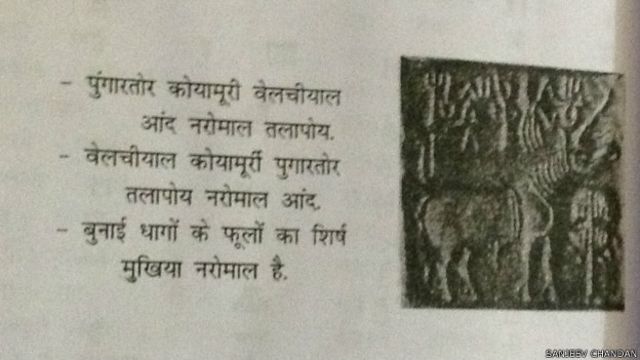 - पुंगारतोर कोयामूरी वेलचीयाल
आंद नरोमाल तलापोय.
- वेलचीयाल कोयामूर्री पुगारतोर
तलापोय नरोमाल आंद.
- बुनाई धागों के फूलों का शिर्ष
मुखिया नरोमाल है.
SANJEEV CHANDAN